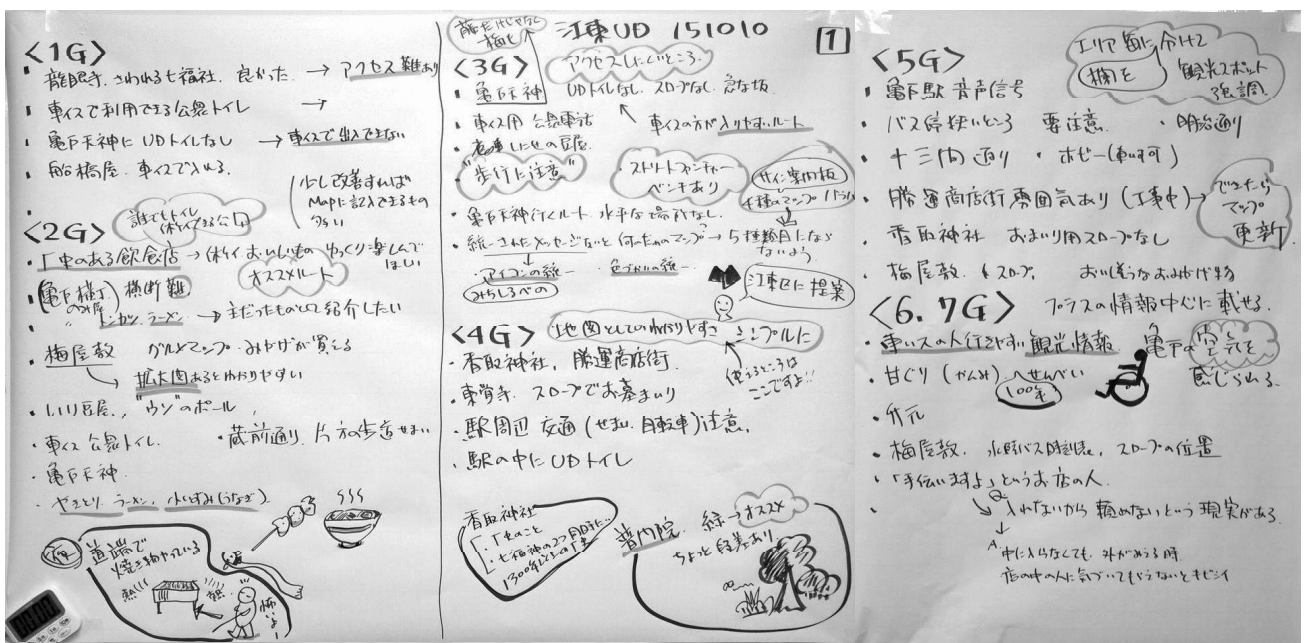 江東UD 151010
1
<1G>
・龍眼寺、さわれる七福社、良かった → アクセス難あり
・車イスで利用できる公衆トイレ →
・亀戸天神にUDトイレなし → 車イスで出入できない
・船橋屋、車イスで入れる。
少し改善すれば
Mapに記入できるもの
多い
<2G>
誰でもトイレ
休けいできる公園
のある飲食店 → 休けい おいしいもの ゆっくり楽しんで
ほしい
オススメルート
横断難
トンカツ、ラーメン → 主だったものとして紹介したい
・梅屋敷 グルメマップ・みやげが買える
拡大図あるとわかりやすい
・いり豆屋、"ウソ"のポール
・車イス 公衆トイレ
・蔵前通り、片方の歩道せまい
・亀戸天神
・やきとり ラーメン
道端で
焼き物やっている
熱
怖いよー
藤だけじゃなく
梅も
<3G>
アクセスしにくいところ
・亀戸天神 UDトイレなし、スロープなし、急な坂
・車イス用 公衆電話
車イスの方が入りやすいルート
・老舗 いせの豆屋
"歩行に注意"
・ストリートファニチャー
ベンチあり
サイン案内板
4種のマップ バラバラ
・亀戸天神行くルート 水平な場所なし
・統一されたメッセージないと何のためのマップ? → 5種類目にならないよう
・アイコンの統一
・色づかいの統一
みちしるべの
江東区に提案
<4G>
地図としてのわかりやすさ シンプルに
・香取神社、勝運商店街
使えるところは
ここですよ!!
・東覚寺、スロープでお墓まいり
・駅周辺 交通(せまい、自転車)注意
・駅の中にUDトイレ
香取神社
普門院 緑 オススメ
ちょっと段差あり
<5G>
エリア毎に分けて
欄を
観光スポット
強調
・亀戸駅 音声信号
・バス停狭いところ 要注意
・明治通り
・十三間通り
・勝運商店街 雰囲気あり(工事中) →
できたら
マップ
更新
・香取神社 おまいり用スロープなし
・梅屋敷 スロープ おいしそうなおみやげ物
<6.7G> プラスの情報中心に載せる。
・車いすの人行きやすい観光情報
亀戸の空気を
感じられる
・甘ぐり(かんみ) せんべい
100年
・升元
・梅屋敷、水陸バス時刻表、スロープの位置
・「手伝いますよ」というお店の人。
入れないから 頼めないという現実がある
中に入らなくても
店の中の人に気づいてもらえないとキビシイ